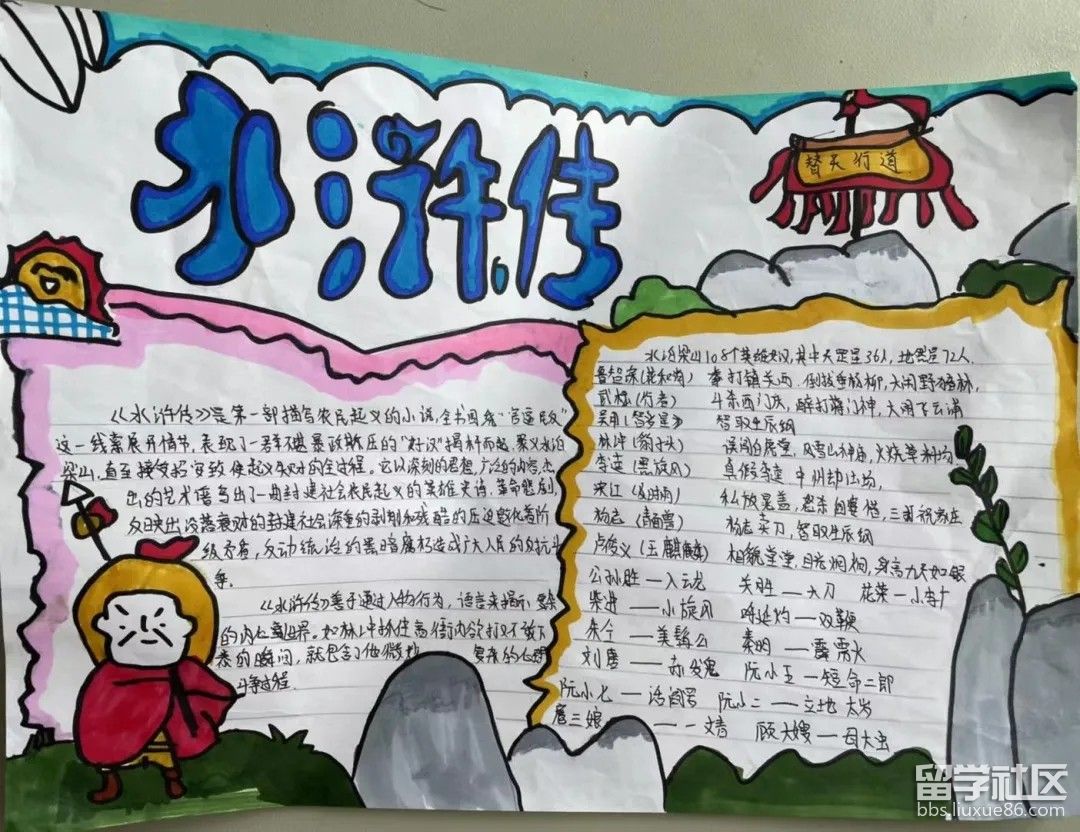 水浒传
替天行道
《水浒传》是第一部描写农民起义的小说,全书围绕"官逼民反"
这一线索展开情节,表现了一群不堪暴政欺压的"好汉"揭竿而起,聚义水泊
梁山,直至接受招安致使起义失败的全过程。它以深刻的思想,广泛的内容,杰
出的艺术谱写出了一曲封建社会农民起义的英雄史诗,革命悲剧,
反映出没落衰败的封建社会深重的剥削和残酷的压迫致使阶
级矛盾,反动统治的黑暗腐朽造成广大人民的对抗斗
争。
《水浒传》善于通过人物行为,语言来揭示复杂
的内心世界。如林冲抓住高衙内欲打又不敢下
拳的瞬间,就包含了他微妙 复杂的心理
斗争过程.
水泊梁山108个英雄好汉,其中天罡星36人,地煞星72人.
鲁智深(花和尚) 拳打镇关西,倒拔垂杨柳,大闹野猪林,
武松(行者) 斗杀西门庆,醉打蒋门神,大闹飞云浦
吴用(智多星) 智取生辰纲
林冲(豹子头) 误闯白虎堂,风雪山神庙,火烧草料场
李逵(黑旋风) 真假李逵 中州劫法场,
宋江(及时雨) 私放晁盖,怒杀阎婆惜,三打祝家庄
杨志(青面兽) 杨志卖刀,智取生辰纲
卢俊义(玉麒麟) 相貌堂堂,目若炯炯,身高九尺如银
公孙胜—入云龙 关胜—大刀 花荣—小李广
柴进—小旋风 呼延灼—双鞭
朱仝—美髯公 秦明—霹雳火
刘唐—赤发鬼 阮小五—短命二郎
阮小七—活阎罗 阮小二—立地太岁
扈三娘——一丈青 顾大嫂—母大虫
留学社区
bbs.liuxue86.com